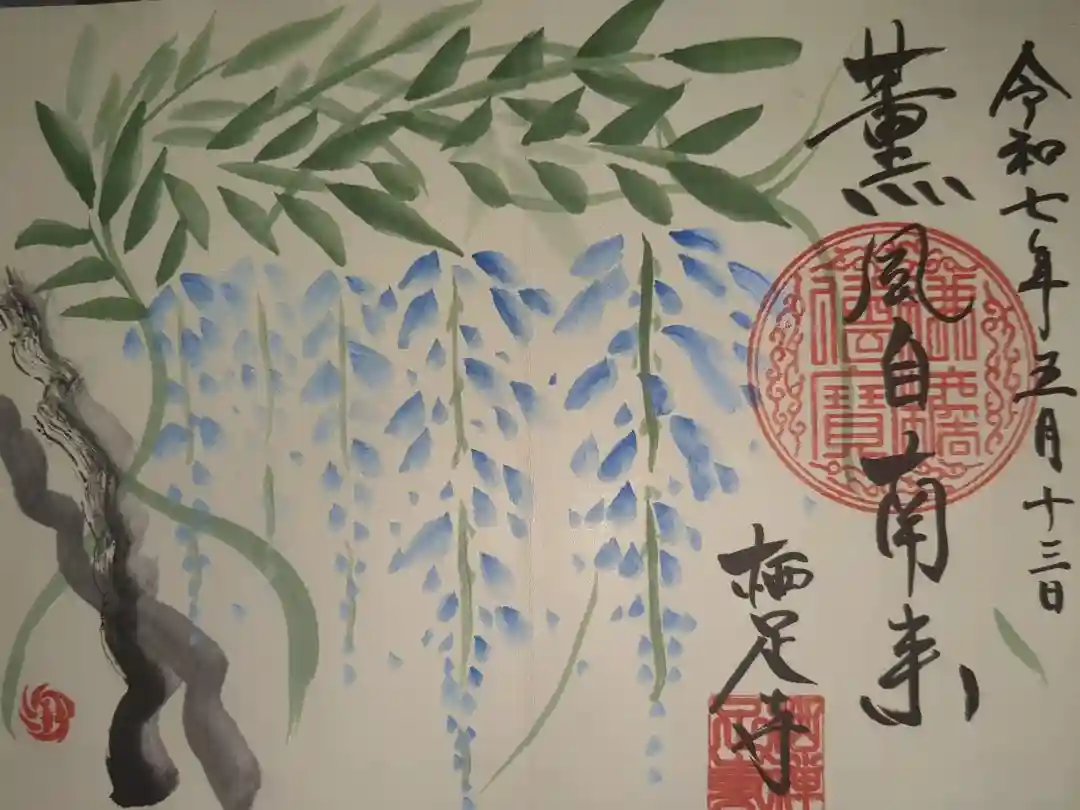 令和七年五月十三日
薫風自南来
栖足寺